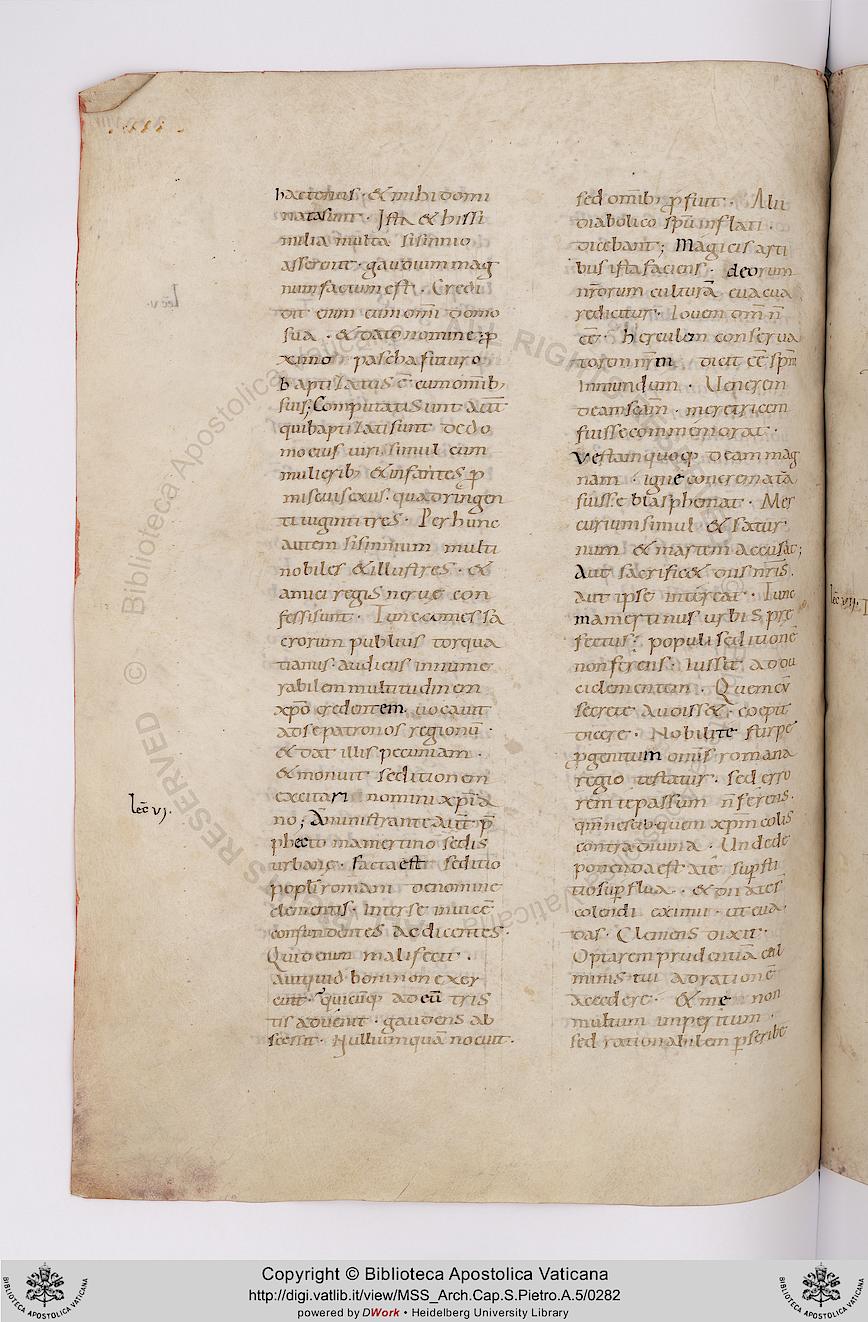 hactenus · & mihi domi
nata sunt · Ista & his si
milia multa sisinnio
asserente · gaudium mag
num factum est · Credi
dit enim cum omi domo
sua · & dato nomine p
ximo pascha futuro
baptizatus ē cum omib;
suis; Computati sunt aut̄
qui baptizati sunt de do
mo eius viri simul cum
mulierib; & infantes p
miscui sexus · quadringen
ti viginti tres · Per hunc
autem sisinnium multi
nobiles & illustres · &
amici regis nerve con
fessi sunt · Tunc comes sa
crorum publius torqua
tianus · audiens innume
rabilem multitudinem
xpō credentem · vocavit
ad se patronos regionū ·
& dat illis pecuniam ·
& monuit seditionem
excitari nomini xp̄ia
no; Aministrante aut̄ p̄
phecto mamertino sedis
urbanę · facta est seditio
popl̄i romani de nomine
clementis · inter se invicē
confundentes ac dicentes ·
Quid enim mali fecit ·
aut quid boni non exer
cuit · quicūq; ad eū tris
tis advenit · gaudens ab
scessit · Nullum quā nocuit ·
lec̄ vj.
sed omib; p̄fuit · Alii
diabolico spū inflati ·
dicebant; Magicis arti
bus ista faciens · deorum
nr̄orum culturā evacua
re dicitur · Iovem om̄ n̄
eē · herculem conserva
torem nr̄m dicit eē spm̄
inmundum · Venerem
deam sc̄am · meretricem
fuisse commemorat ·
Vestam quoq; deam mag
nam · igne concrematā
fuisse blasphemat · Mer
curium simul & satur
num & martem accusat;
Aut sacrific& diis nr̄is ·
aut ipse intereat · Tunc
mamertinus urbis pre
fectus · populi seditionē
non ferens · iussit ad du
ci clementem · Quem cū
secrete audiss& · coepit
dicere · Nobilite stirpe
p̄genitum om̄is romana
regio testatur · sed erro
rem te passum n̄ ferens ·
qm̄ nescio quem xpm̄ colis
contra divina · Unde de
ponenda est a te supsti
tio sup̄flua · & dii a te
colendi eximii · ut eva
das · Clemens dixit ·
Optarem prudentiā cul
minis tui ad rationē
accedere · & me non
multum imperitum ·
sed rationabilem p̄scribe
lec̄ vij.
Copyright © Biblioteca Apostolica Vaticana
http://digi.vatlib.it/view/MSS_Arch.Cap.S.Pietro.A.5/0282
powered by DWork • Heidelberg University Library